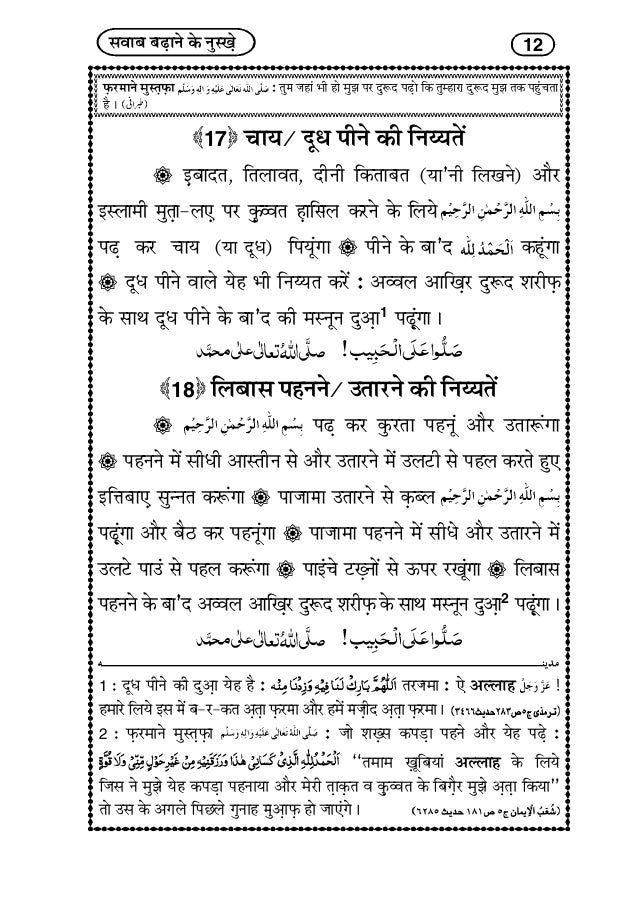 सवाब बढ़ाने के नुस्खे़
12
फ़रमाने मुस्त़फ़ा صَلَّى اللهُ تَعَالٰى عَلَيْهِ وَاٰلِهٖ وَسَلَّم : तुम जहां भी हो मुझ पर दुरूद पढ़ो कि तुम्हारा दुरूद मुझ तक पहुंचता
है । (طبرانی)
﴾17﴿ चाय/ दूध पीने की निय्यतें
۞ इ़बादत, तिलावत, दीनी किताबत (या'नी लिखने) और
इस्लामी मुत़ा-लए़ पर कु़व्वत ह़ासिल करने के लिये بِسْمِ اللهِ الرَّحْمٰنِ الرَّحِيْم
पढ़ कर चाय (या दूध) पियूंगा ۞ पीने के बा'द اَلْحَمْدُ لِلّٰه कहूंगा
۞ दूध पीने वाले येह भी निय्यत करें : अव्वल आखि़र दुरूद शरीफ़
के साथ दूध पीने के बा'द की मस्नून दुआ़¹ पढ़ूंगा ।
صَلُّوا عَلَى الْحَبِيْب! صلَّى اللهُ تعالٰى على محمَّد
﴾18﴿ लिबास पहनने/ उतारने की निय्यतें
۞ بِسْمِ اللهِ الرَّحْمٰنِ الرَّحِيْم पढ़ कर कुरता पहनूं और उतारूंगा
۞ पहनने में सीधी आस्तीन से और उतारने में उलटी से पहल करते हुए
इत्तिबाए़ सुन्नत करूंगा ۞ पाजामा उतारने से क़ब्ल بِسْمِ اللهِ الرَّحْمٰنِ الرَّحِيْم
पढ़ूंगा और बैठ कर पहनूंगा ۞ पाजामा पहनने में सीधे और उतारने में
उलटे पाउं से पहल करूंगा ۞ पाइंचे टख़्नों से ऊपर रखूंगा ۞ लिबास
पहनने के बा'द अव्वल आखि़र दुरूद शरीफ़ के साथ मस्नून दुआ़² पढ़ूंगा ।
صَلُّوا عَلَى الْحَبِيْب! صلَّى اللهُ تعالٰى على محمَّد
مدینہ
1 : दूध पीने की दुआ़ येह है : اَللّٰهُمَّ بَارِكْ لَنَا فِيْهِ وَزِدْنَا مِنْه तरजमा : ऐ अल्लाह عَزَّوَجَلَّ !
हमारे लिये इस में ब-र-कत अ़त़ा फ़रमा और हमें मज़ीद अ़त़ा फ़रमा । (ترمذی ج۵ ص۲۸۳ حدیث ۳۴۶۶)
2 : फ़रमाने मुस्त़फ़ा صَلَّى اللهُ تَعَالٰى عَلَيْهِ وَاٰلِهٖ وَسَلَّم : जो शख़्स कपड़ा पहने और येह पढ़े :
اَلْحَمْدُ لِلّٰهِ الَّذِيْ كَسَانِيْ هٰذَا وَرَزَقَنِيْهِ مِنْ غَيْرِ حَوْلٍ مِّنِّيْ وَلَا قُوَّةٍ “तमाम ख़ूबियां अल्लाह के लिये
जिस ने मुझे येह कपड़ा पहनाया और मेरी त़ाक़त व कु़व्वत के बिग़ैर मुझे अ़त़ा किया”
तो उस के अगले पिछले गुनाह मुआ़फ़ हो जाएंगे । (شُعَبُ الْاِیمان ج۵ ص۱۸۱ حدیث ۶۲۸۵)